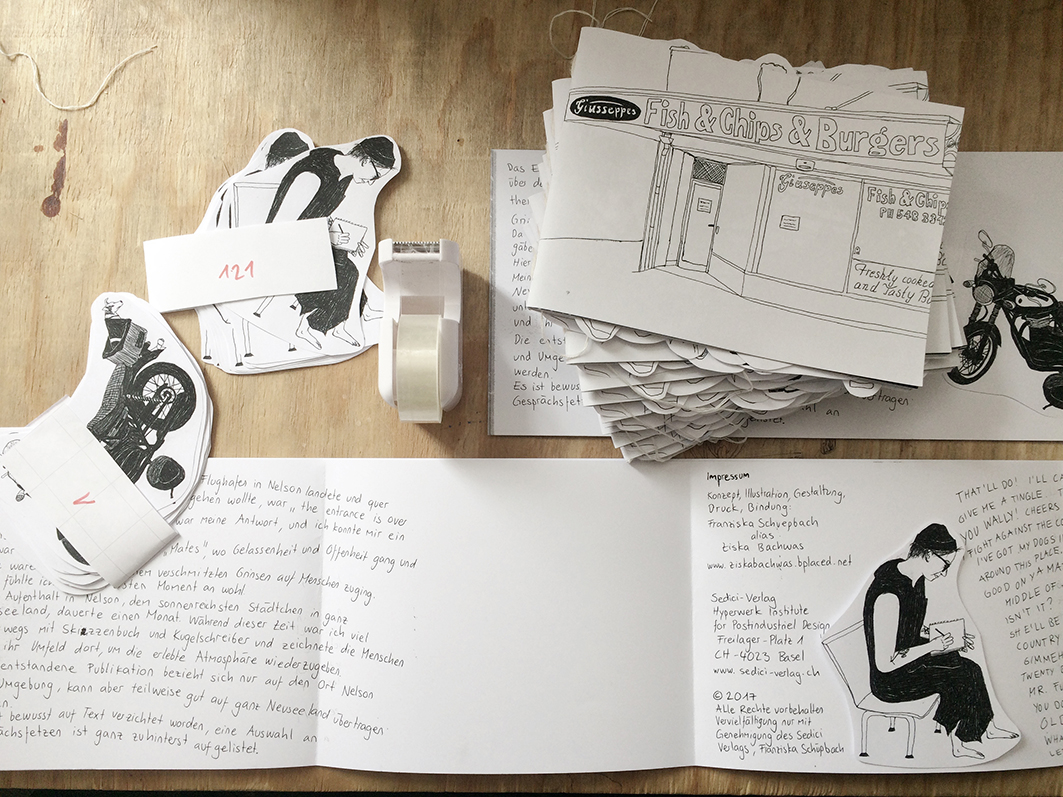 Giusseppes Fish & Chips & Burgers
Giuseppes
Fish & Chips
PH 548 33
Freshly cooked
and Tasty
121
V
Das E
über de
thei
Gri
Da
gäbe
Hier
Mein
Ne
unt
und h
Die entst
und Umge
werden
Es ist bewus
Gesprächsfetz
Flughafen in Nelson landete und quer
gehen wollte, war „the entrance is over
war meine Antwort, und ich konnte mir ein
"Mates", wo Gelassenheit und Offenheit gang und
ware
em verschmitzten Grinsen auf Menschen zuging.
fühlte ich sten Moment an wohl
Aufenthalt in Nelson, dem sonnenreichsten Städtchen in ganz
seeland, dauerte einen Monat. Während dieser Zeit war ich viel
wegs mit Skizzenbuch und Kugelschreiber und zeichnete die Menschen
ihr Umfeld dort, um die erlebte Atmosphäre wiederzugeben.
entstandene Publikation bezieht sich nur auf den Ort Nelson
Umgebung, kann aber teilweise gut auf ganz Neuseeland übertragen
en.
t bewusst auf Text verzichtet worden, eine Auswahl an
ächsfetzen ist ganz zuhinterst aufgelistet.
Impressum
Konzept, Illustration, Gestaltung,
Druck, Bindung:
Franziska Schüepbach
alias
ziska Bachwas
www.ziskabachwas.bplaced.net
Sedici-Verlag
Hyperwerk Institute
for Postindustriel Design
Freilager-Platz 1
CH-4023 Basel
www.sedici-verlag.ch
© 2017
Alle Rechte vorbehalten
Vervielfältigung nur mit
Genehmigung des Sedici
Verlags, Franziska Schüpbach
THAT'LL DO! I'LL CA
GIVE ME A TINGLE.
YOU WALLY! CHEERS
FIGHT AGAINST THE
I'VE GOT MY DOGS I
AROUND THIS PLACE.
GOOD ON YA MA
MIDDLE OF
ISN'T IT?
SHE'LL BE
COUNTRY
GIMMEH
TWENTY
MR. F
YOU DO
OLD
WHA
LE